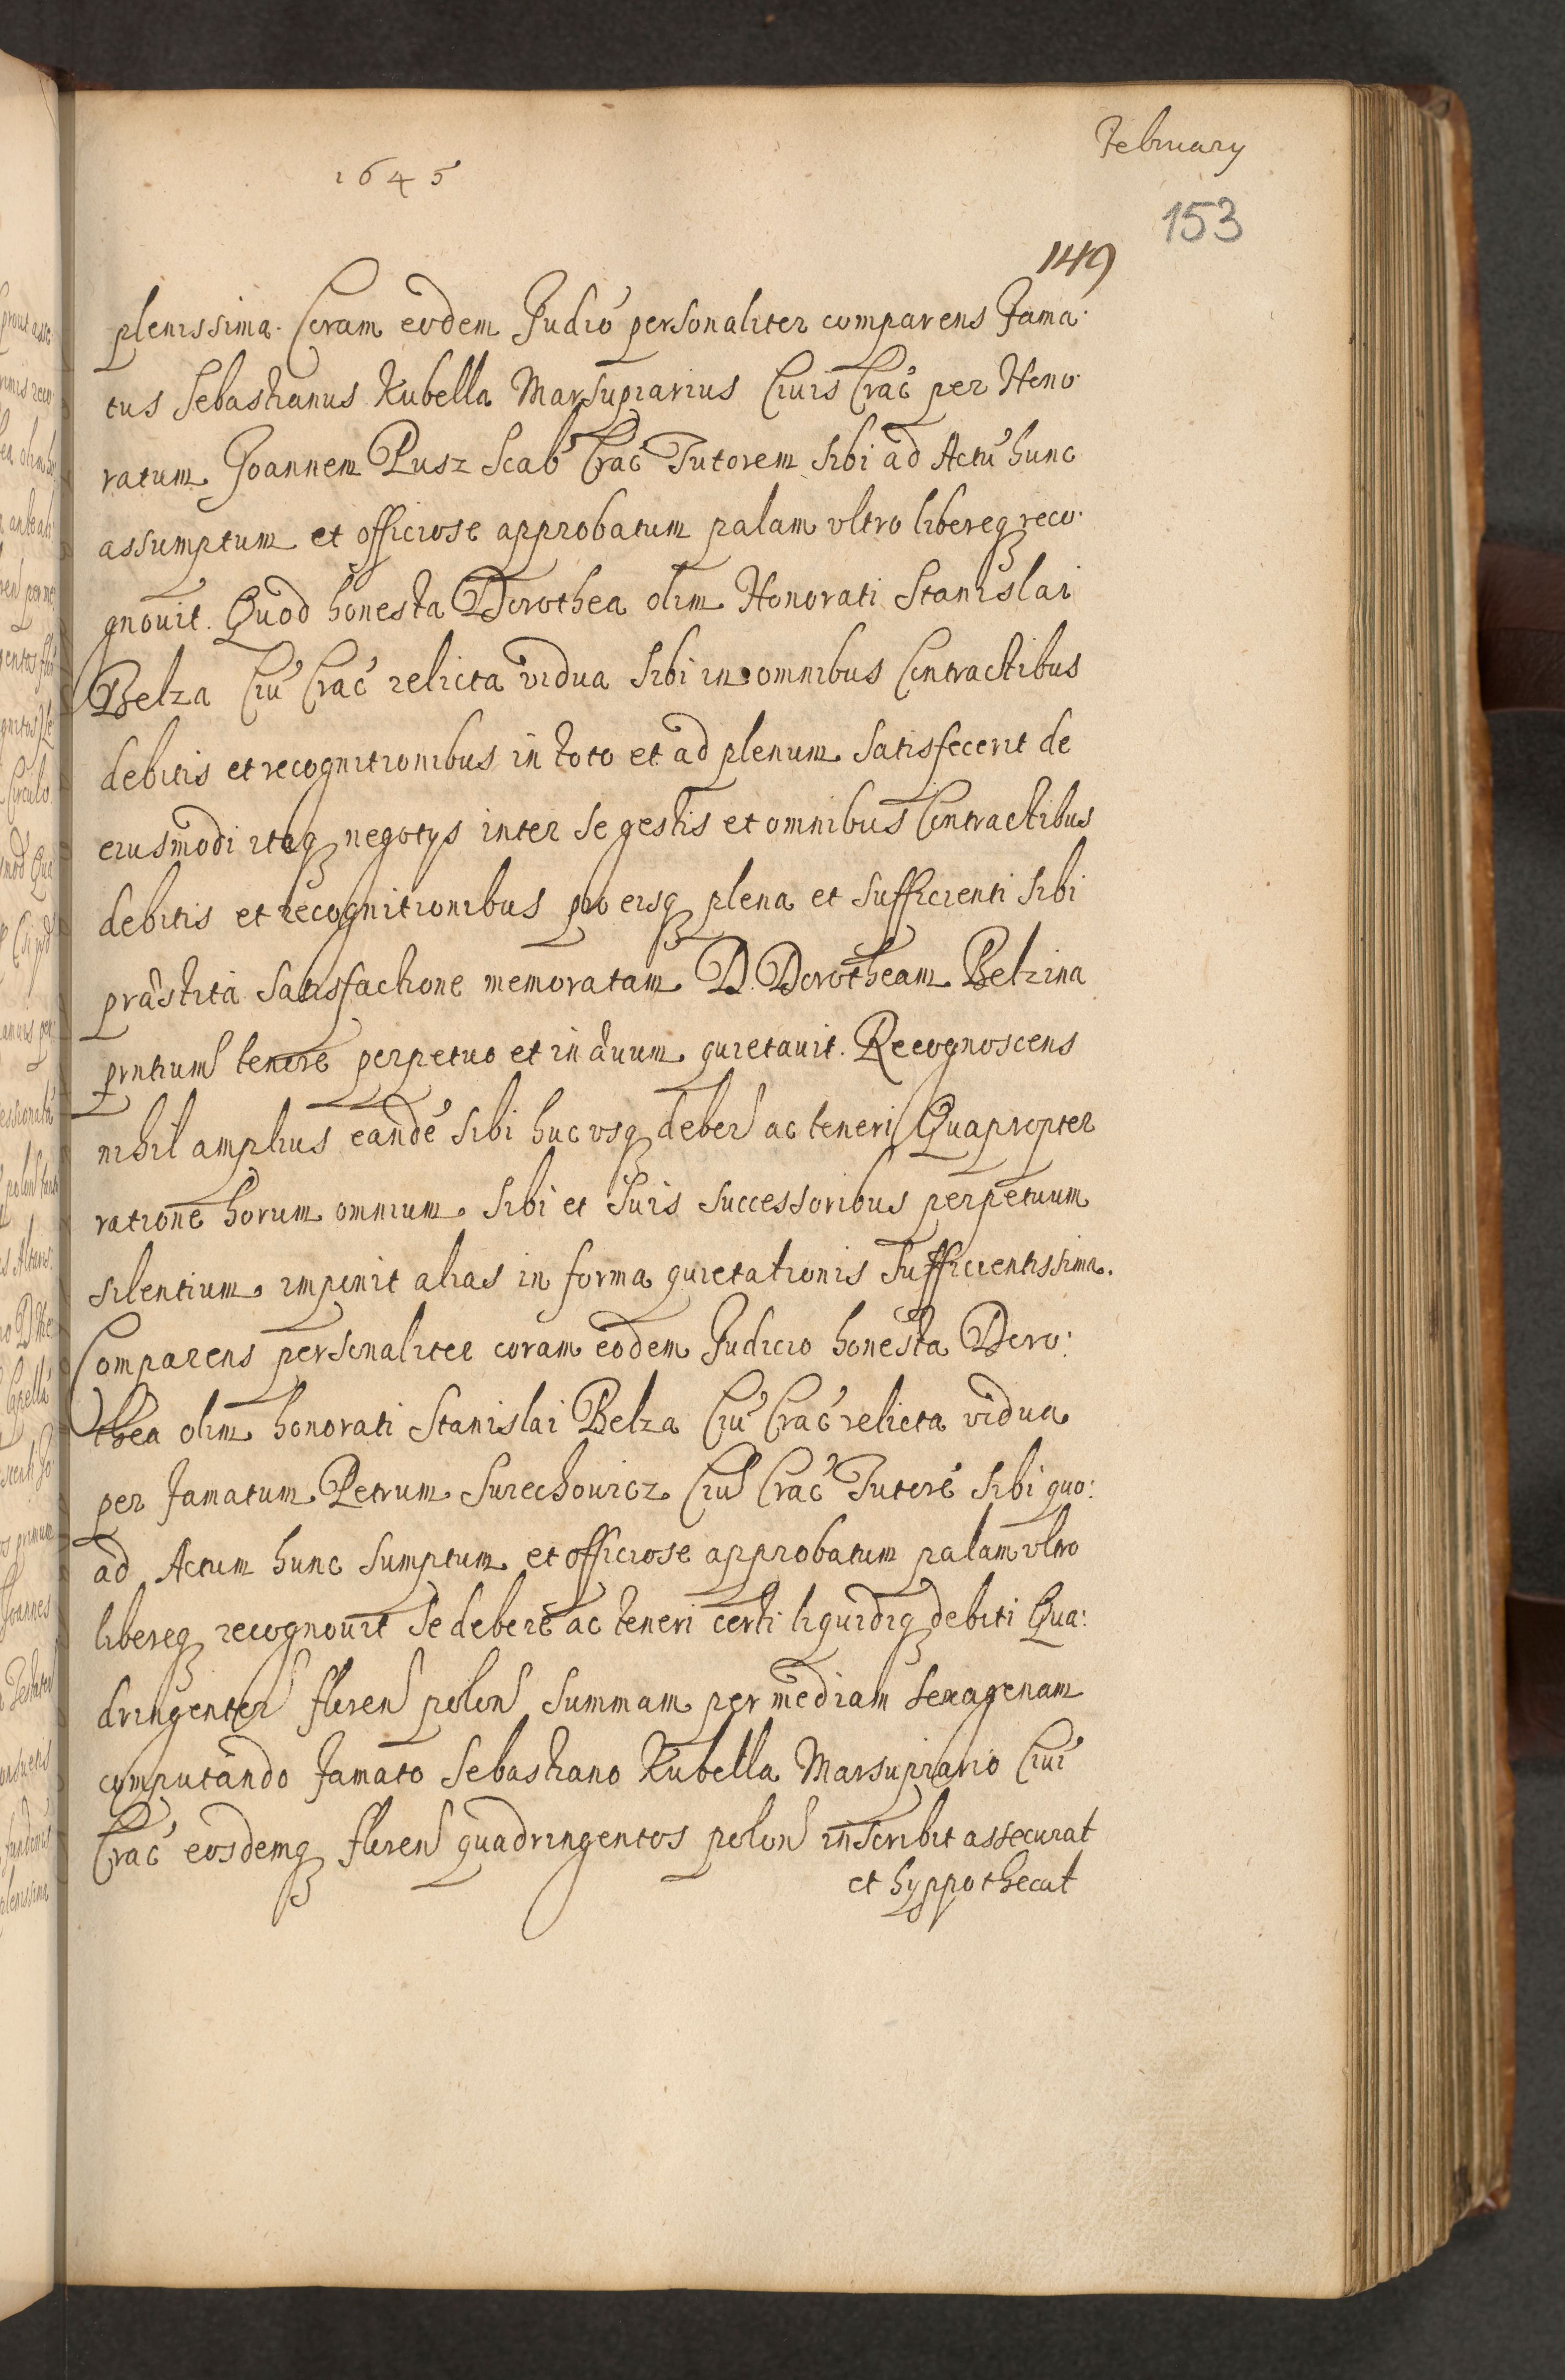 February
1645
153
149
plenissima. Coram eodem Judiō personaliter comparens Fama:
tus Sebastianus Kubella Marsupiarius Ciuis Crac̄ per Hono:
ratum Joannem Pusz Scab̄ Crac̄ Tutorem sibi ad Actū hunc
assumptum et officiose approbatum palam vltro libereq reco:
gnouit. Quod honesta Dorothea olim Honorati Stanislai
Belza Ciū Crac̄ relicta vidua sibi in omnibus Contractibus
debitis et recognitionibus in toto et ad plenum satisfecerit de
eiusmodi itaq negotys inter se gestis et omnibus Contractibus
debitis et recognitionibus pro eisq plena et sufficienti sibi
præstita satisfactione memoratam D. Dorotheam Belzina
prntium tenore perpetuo et in ævum quietauit. Recognoscens
nihil amplius eandē sibi huc vsq deber ac teneri Quapropter
ratione horum omnium sibi et suis successoribus perpetuum
silentium imponit alias in forma quietationis sufficientissima.
Comparens personaliter coram eodem Judicio honesta Doro:
thea olim honorati Stanislai Belza Ciū Crac̄ relicta vidua
per famatum Petrum Surechowicz Ciū Crac̄ Tutorē sibi quo:
ad Actum hunc sumptum et officiose approbatum palam vltro
libereq recognouit se debere ac teneri certi liquidiq debiti Qua:
dringentor floren polon summam per mediam sexagenam
computando famato Sebastiano Kubella Marsupiario Ciui
Crac̄ eosdemq floren quadringentos polon inscribit assecurat
et hyppothecat